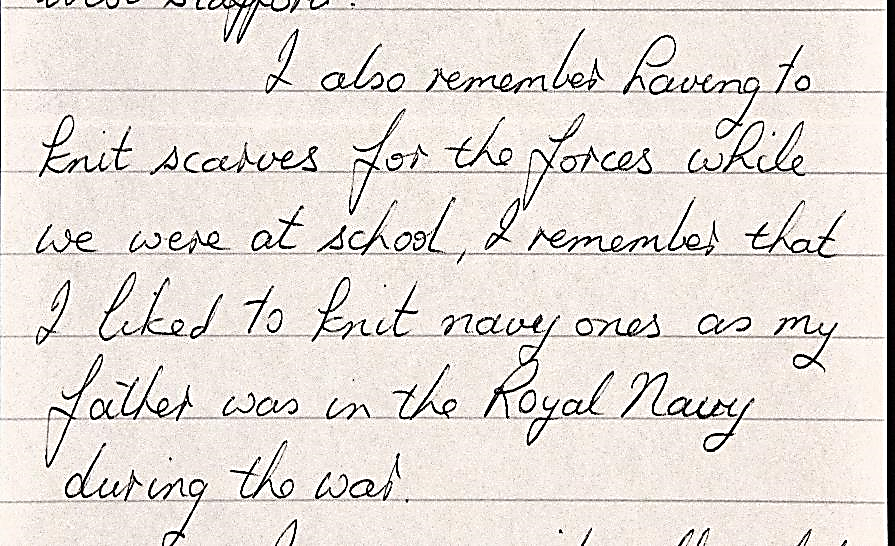 I also remember having to
knit scarves for the forces while
we were at school, I remember that
I liked to knit navy ones as my
father was in the Royal Navy
during the war.